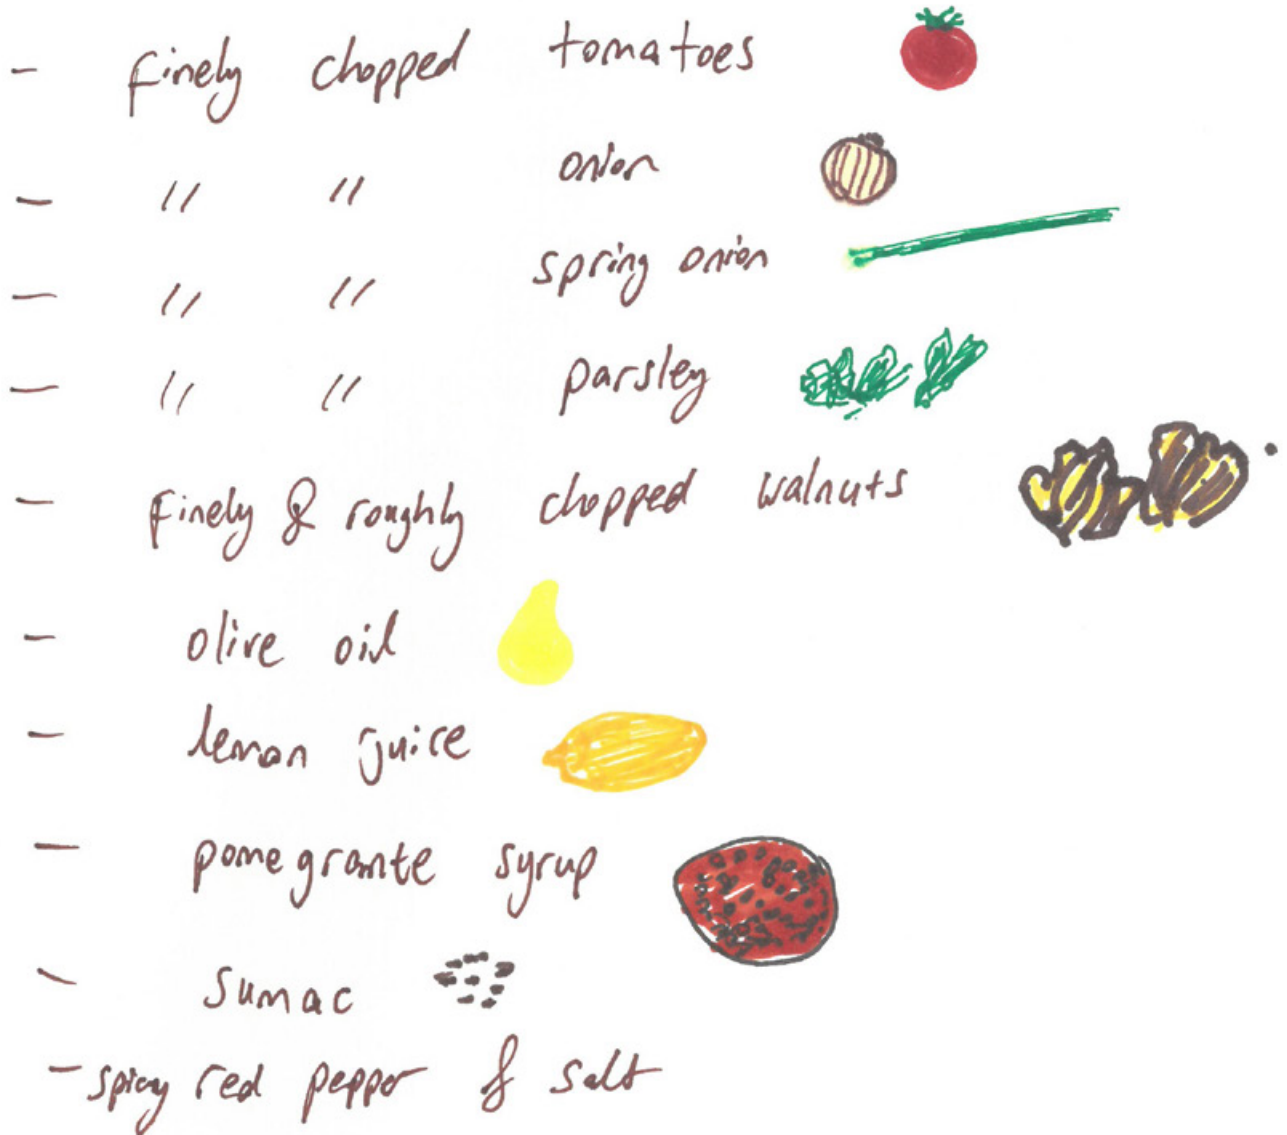 - finely chopped tomatoes
- " " onion
- " " spring onion
- " " parsley
- finely & roughly chopped walnuts
- olive oil
- lemon juice
- pomegrante syrup
- sumac
- spicy red pepper & salt